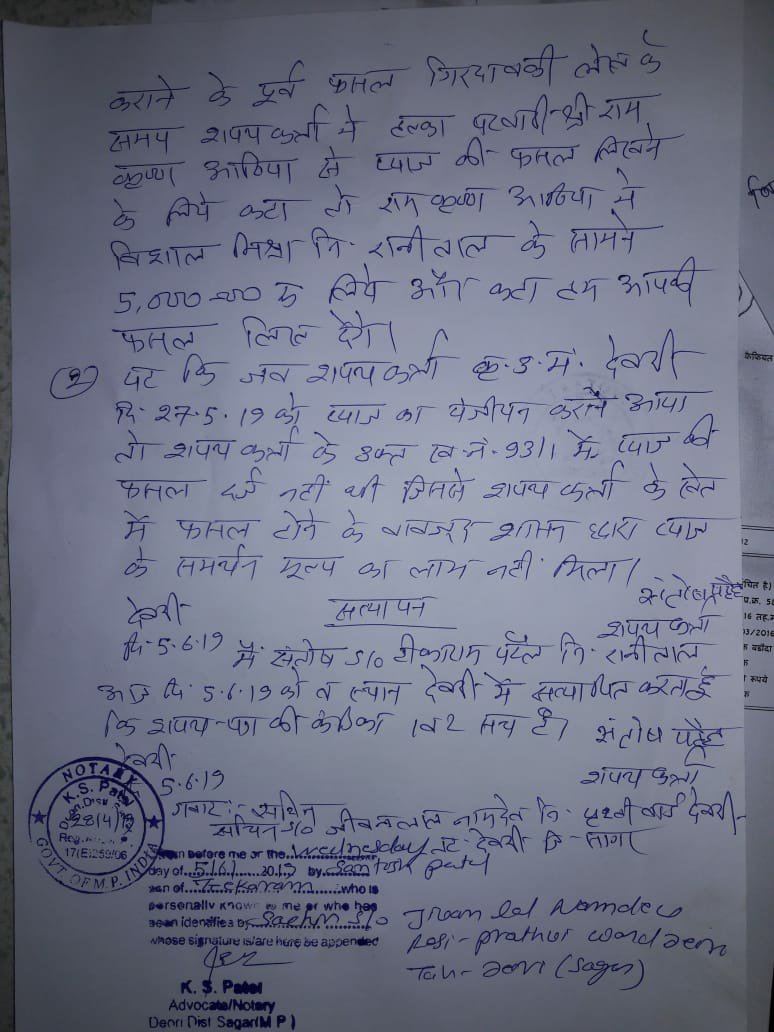 कराने के पूर्व फसल गिरदावली लेख के
समय शपथकर्ता ने हल्का पटवारी श्री राम
कृष्ण आठिया से प्याज की फसल लिखने
के लिये कहा तो रामकृष्ण आठिया ने
विशाल मिश्रा नि. रानीताल के सामने
5,000=00 रु लिये और कहा हम आपकी
फसल लिख देंगे।
② यह कि जब शपथकर्ता कृ. उ. मं. देवरी
दि. 27.5.19 को प्याज का पंजीयन कराने आया
तो शपथकर्ता के उक्त ख.नं. 93/1 में प्याज की
फसल दर्ज नहीं थी जिससे शपथकर्ता के खेत
में फसल होने के बावजूद शासन द्वारा प्याज
के समर्थन मूल्य का लाभ नहीं मिला।
देवरी सत्यापन संतोष पटैल
दि. 5.6.19 शपथकर्ता
मैं संतोष S/o टीकाराम पटैल नि. रानीताल
आज दि. 5.6.19 को व स्थान देवरी में सत्यापित करता हूँ
कि शपथ-पत्र की कंडिका 1 व 2 सत्य है। संतोष पटैल
देवरी शपथकर्ता
5.6.19
गवाह :- सचिन
सचिन S/o जीवनलाल नामदेव नि. पृथ्वी वार्ड देवरी
तह. देवरी जि. सागर
NOTARY
K.S. Patel
Deori, Dist. Sagar
Reg.
17(E)259/06
GOVT. OF M.P. INDIA
before me or the Wednesday
day of 5/6/ 2019 by Santosh Patel
son of Teekaram who is
personally known to me or who has
been identified by Sachin S/o
whose signature is/are here be appended
Namdeo
Resi- ward Deori
Teh- Deori (Sagar)
K. S. Patel
Advocate/Notary
Deori Dist Sagar(M P )
कैफियत